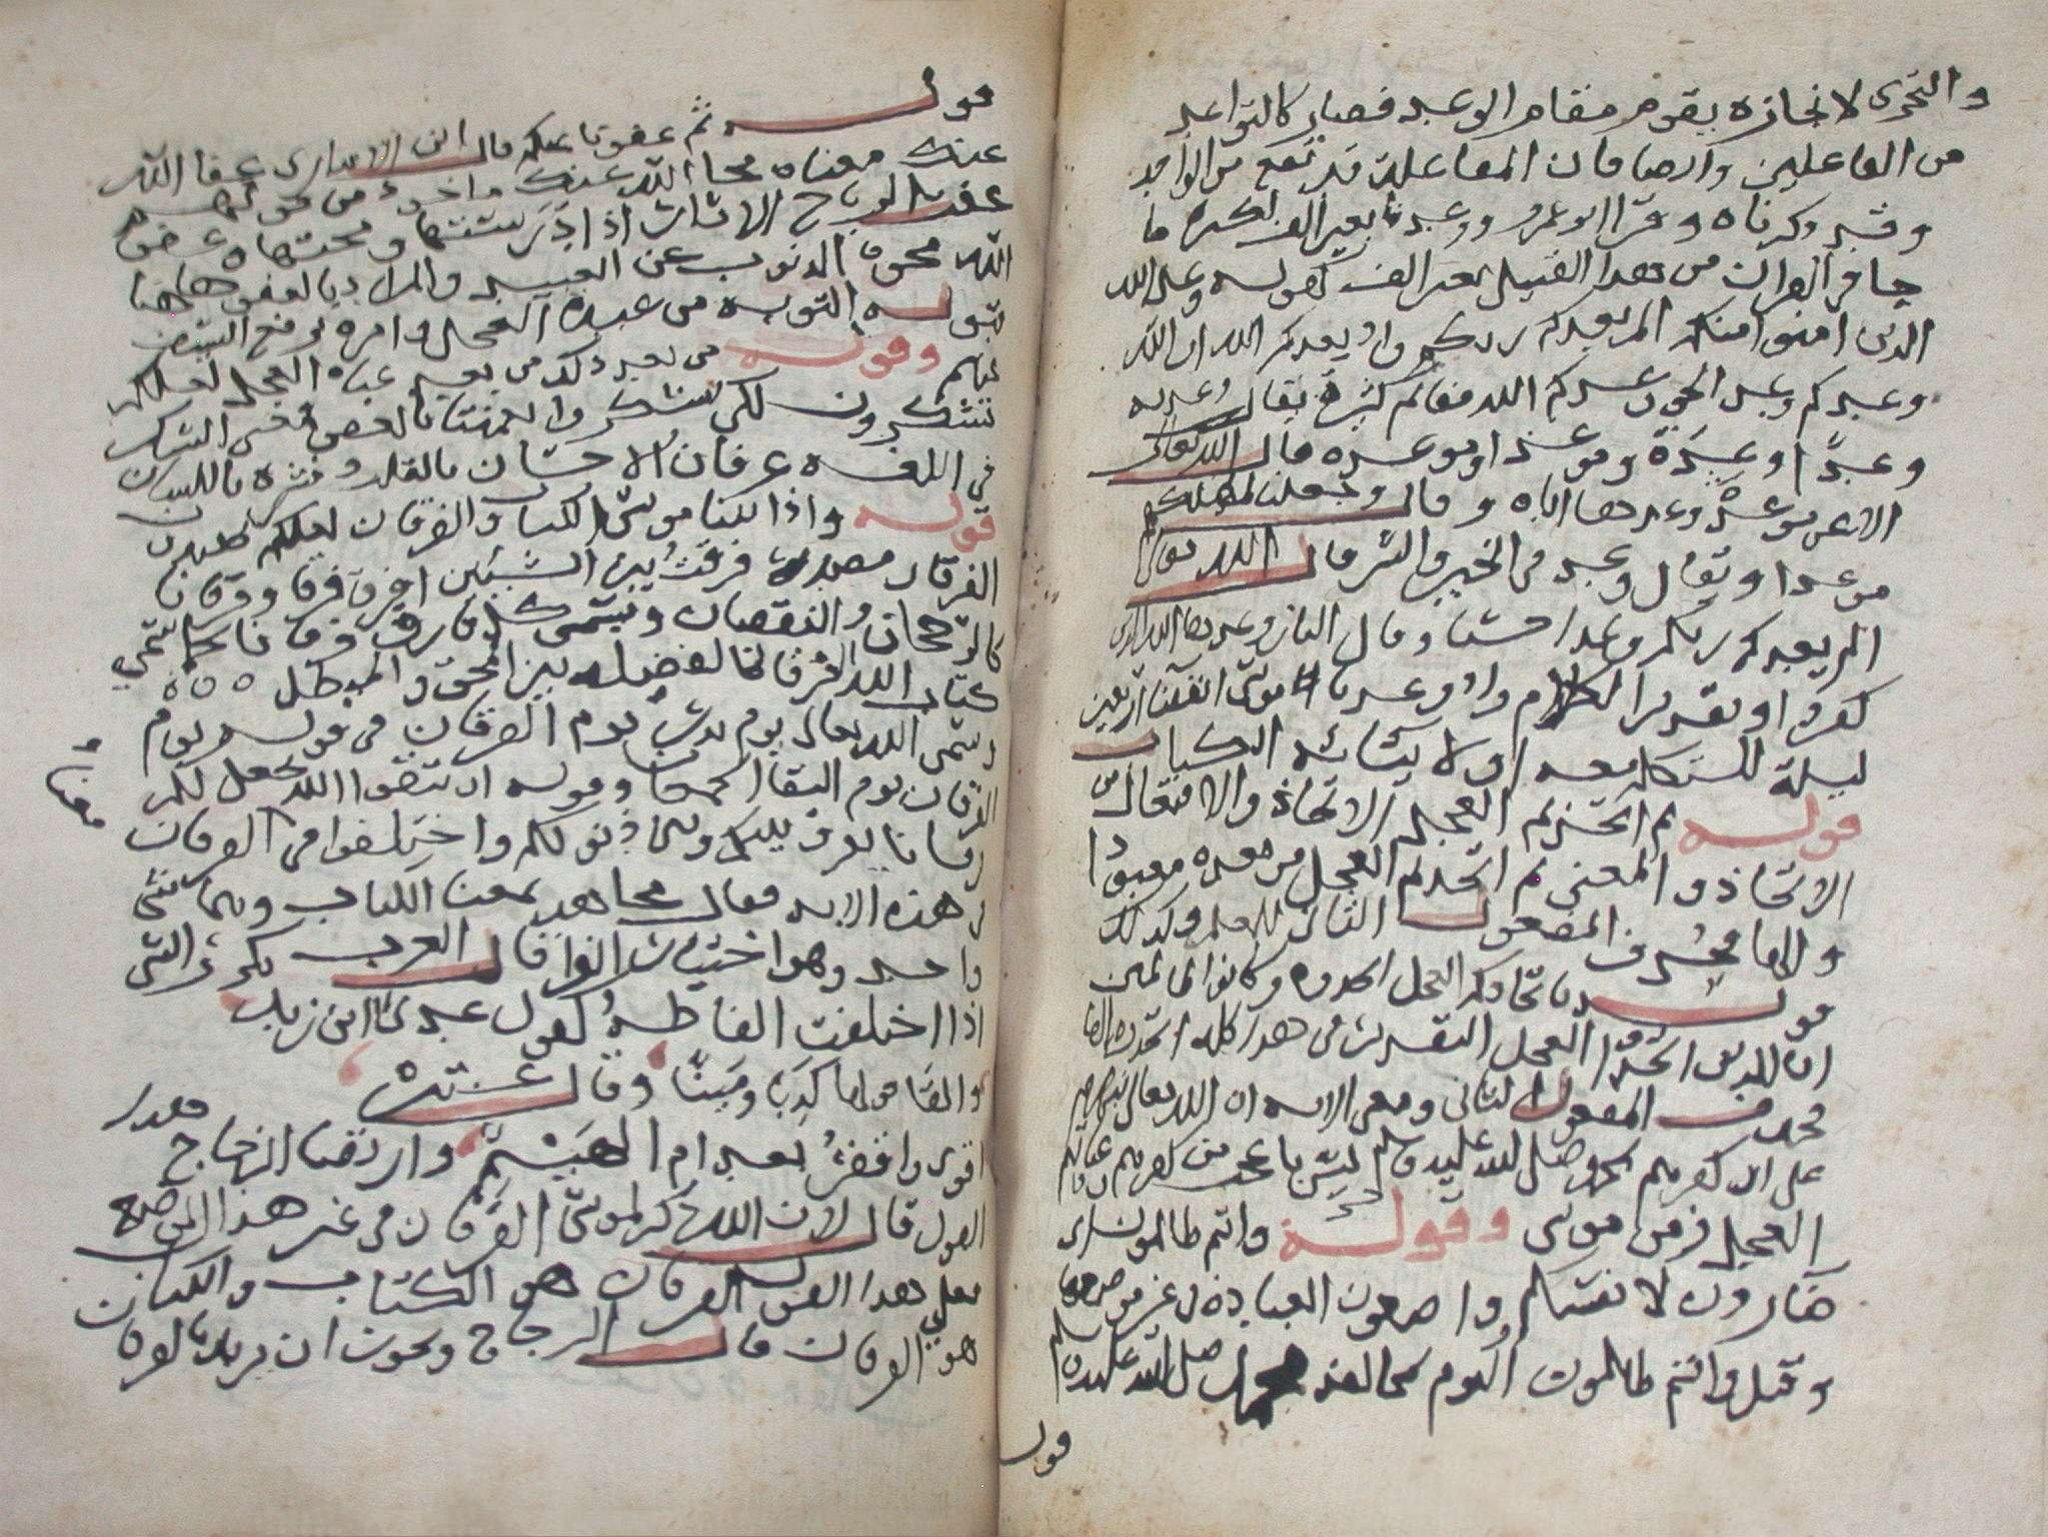 والتحرى لانجازه يقوم مقام الوعد فصار كالتواعد
من الفاعلين وايضا فان المفاعلة قد تقع من الواحد
وقد ذكرناه وقرا ابو عمرو ووعدنا بغير الف لكثرة ما
جا في القران من هذا القبيل بغير الف كقوله وعد الله
الذين امنوا منكم الم يعدكم ربكم واذ يعدكم الله ان الله
وعدكم وعد الحق وعدكم الله مغانم كثيرة يقال وعدته
وعدا وعدة وموعدا وموعدة قال الله تعالى
الا عن موعدة وعدها اياه وقال وجعلنا لمهلكهم
موعدا ويقال وعد في الخير والشر قال الله تعالى
الم يعدكم ربكم وعدا حسنا وقال النار وعدها الله الذين
كفروا وتقدير الكلام واذ وعدنا موسى انقضا اربعين
ليلة للتكلم معه او لايتائه الكتاب
قوله ثم اتخذتم العجل الاتخاذ والافتعال من
الاتخاذ والمعنى ثم اتخذتم العجل من بعده معبودا
والها محذف المفعول الثانى للعلم وكذلك
قوله باتخاذكم العجل اتخذوه وكانوا ظالمين
ان الذين اتخذوا العجل التقدير في هذا كله اتخذوه الها
فحذف المفعول الثانى ومعنى الايه ان الله تعالى
على ان كفرهم بمحمد صلى الله عليه وسلم ليس باعجب من كفرهم وعبادتهم
العجل في زمن موسى وقوله وانتم ظالمون اى
ضارون لانفسكم واضعون العبادة في غير موضعها
وقيل وانتم ظالمون اليوم بمخالفة محمد صلى الله عليه وسلم
قول
قوله ثم عفونا عنكم قال ابن الانبارى عفا الله
عنك معناه محا الله عنك ماخوذ من قولهم
عفت الرياح الاثار اذا درستها ومحتها وعفو
الله محو الذنوب عن العبد والمراد بالعفو هاهنا
قبوله التوبه من عبدة العجل وامره برفع السيف
عنهم وقوله من بعد ذلك من بعد عبادة العجل لعلكم
تشكرون لكى تشكروا نعمتنا بالعفو ومعنى الشكر
في اللغه عرفان الاحسان بالقلب ونشره باللسان
قوله واذ اتينا موسى الكتاب والفرقان لعلكم تهتدون
الفرقان مصدر فرقت بين الشيئين افرق فرقا وفرقانا
كالرجحان والنقصان ويسمى كل فارق فرقانا كما سمى
كتاب الله الفرقان لفصله بين المحق والمبطل
وسمى الله تعالى يوم بدر يوم الفرقان في قوله يوم
الفرقان يوم التقا الجمعان وقوله ان تتقوا الله يجعل لكم
فرقانا يفرق بينكم وبين ذنوبكم واختلفوا في الفرقان
معناه
في هذه الايه فقال مجاهد بمعنا الكتاب وهما شى
واحد وهو اختيار الفرا قال العرب تكرر الشى
اذا اختلفت الفاظه كقول عدى ابن زيد
والفا قولها كذبا ومينا وقال عنترة
اقوى واقفر بعد ام الهيثم وارتضا الزجاج هذا
القول قال لان الله ذكر لموسى الفرقان في غير هذا الموضع
فعلى هذا القول الفرقان هو الكتاب والكتاب
هو الفرقان قال الزجاج ويجوز ان يريد بالفرقان